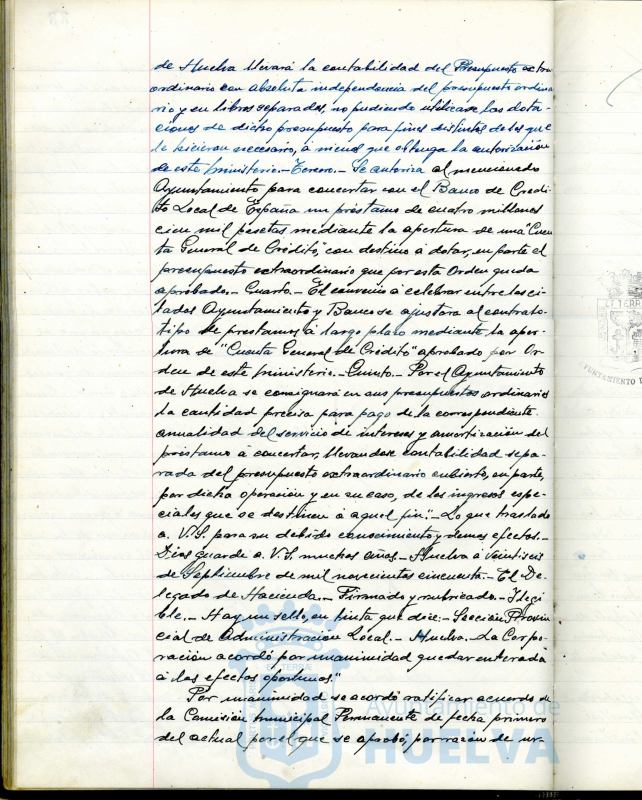 de Huelva llevará la contabilidad del Presupuesto extra
ordinario con absoluta independencia del presupuesto ordina
rio y en libros separados, no pudiendo utilizarse las dota-
ciones de dicho presupuesto para fines distintos de los que
le hicieron necesario, á menos que obtenga la autorización
de este Ministerio.- Tercero.- Se autoriza al mencionado
Ayuntamiento para concertar con el Banco de Crédi
to Local de España un préstamo de cuatro millones
cien mil pesetas mediante la apertura de una "Cuen
ta General de Crédito", con destino á dotar, en parte el
presupuesto extraordinario que por esta Orden queda
aprobado.- Cuarto.- El convenio á celebrar entre los ci-
tados Ayuntamiento y Banco se ajustará al contrato-
tipo de prestamos á largo plazo mediante, la aper-
tura de "Cuenta General de Crédito" aprobado por Or-
den de este Ministerio.- Quinto.- Por el Ayuntamiento
de Huelva se consignará en sus presupuestos ordinarios
la cantidad precisa para pago de la correspondiente
anualidad del servicio de intereses y amortización del
préstamo á concertar, llevandose contabilidad sepa-
rada del presupuesto extraordinario cubierto, en parte,
por dicha operación y en su caso, de los ingresos espe-
ciales que se destinen á aquel fin."- Lo que traslado
a. V.S. para su debido conocimiento y demas efectos.-
Dios guarde a. V.S. muchos años.- Huelva á veintiseis
de Septiembre de mil novecientos cincuenta.- El De-
legado de Hacienda.- Firmado y rubricado.- Ilegi
ble.- Hay un sello, en tinta que dice:- Sección Provin
cial de Administración Local.- Huelva.- La Corpo-
ración acordó por unanimidad quedar enterada
á los efectos oportunos."
Por unanimidad se acordó ratificar acuerdo de
la Comisión Municipal Permanente de fecha primero
del actual por el que se aprobó, por razón de ur-
Ayuntamiento de
HUELVA